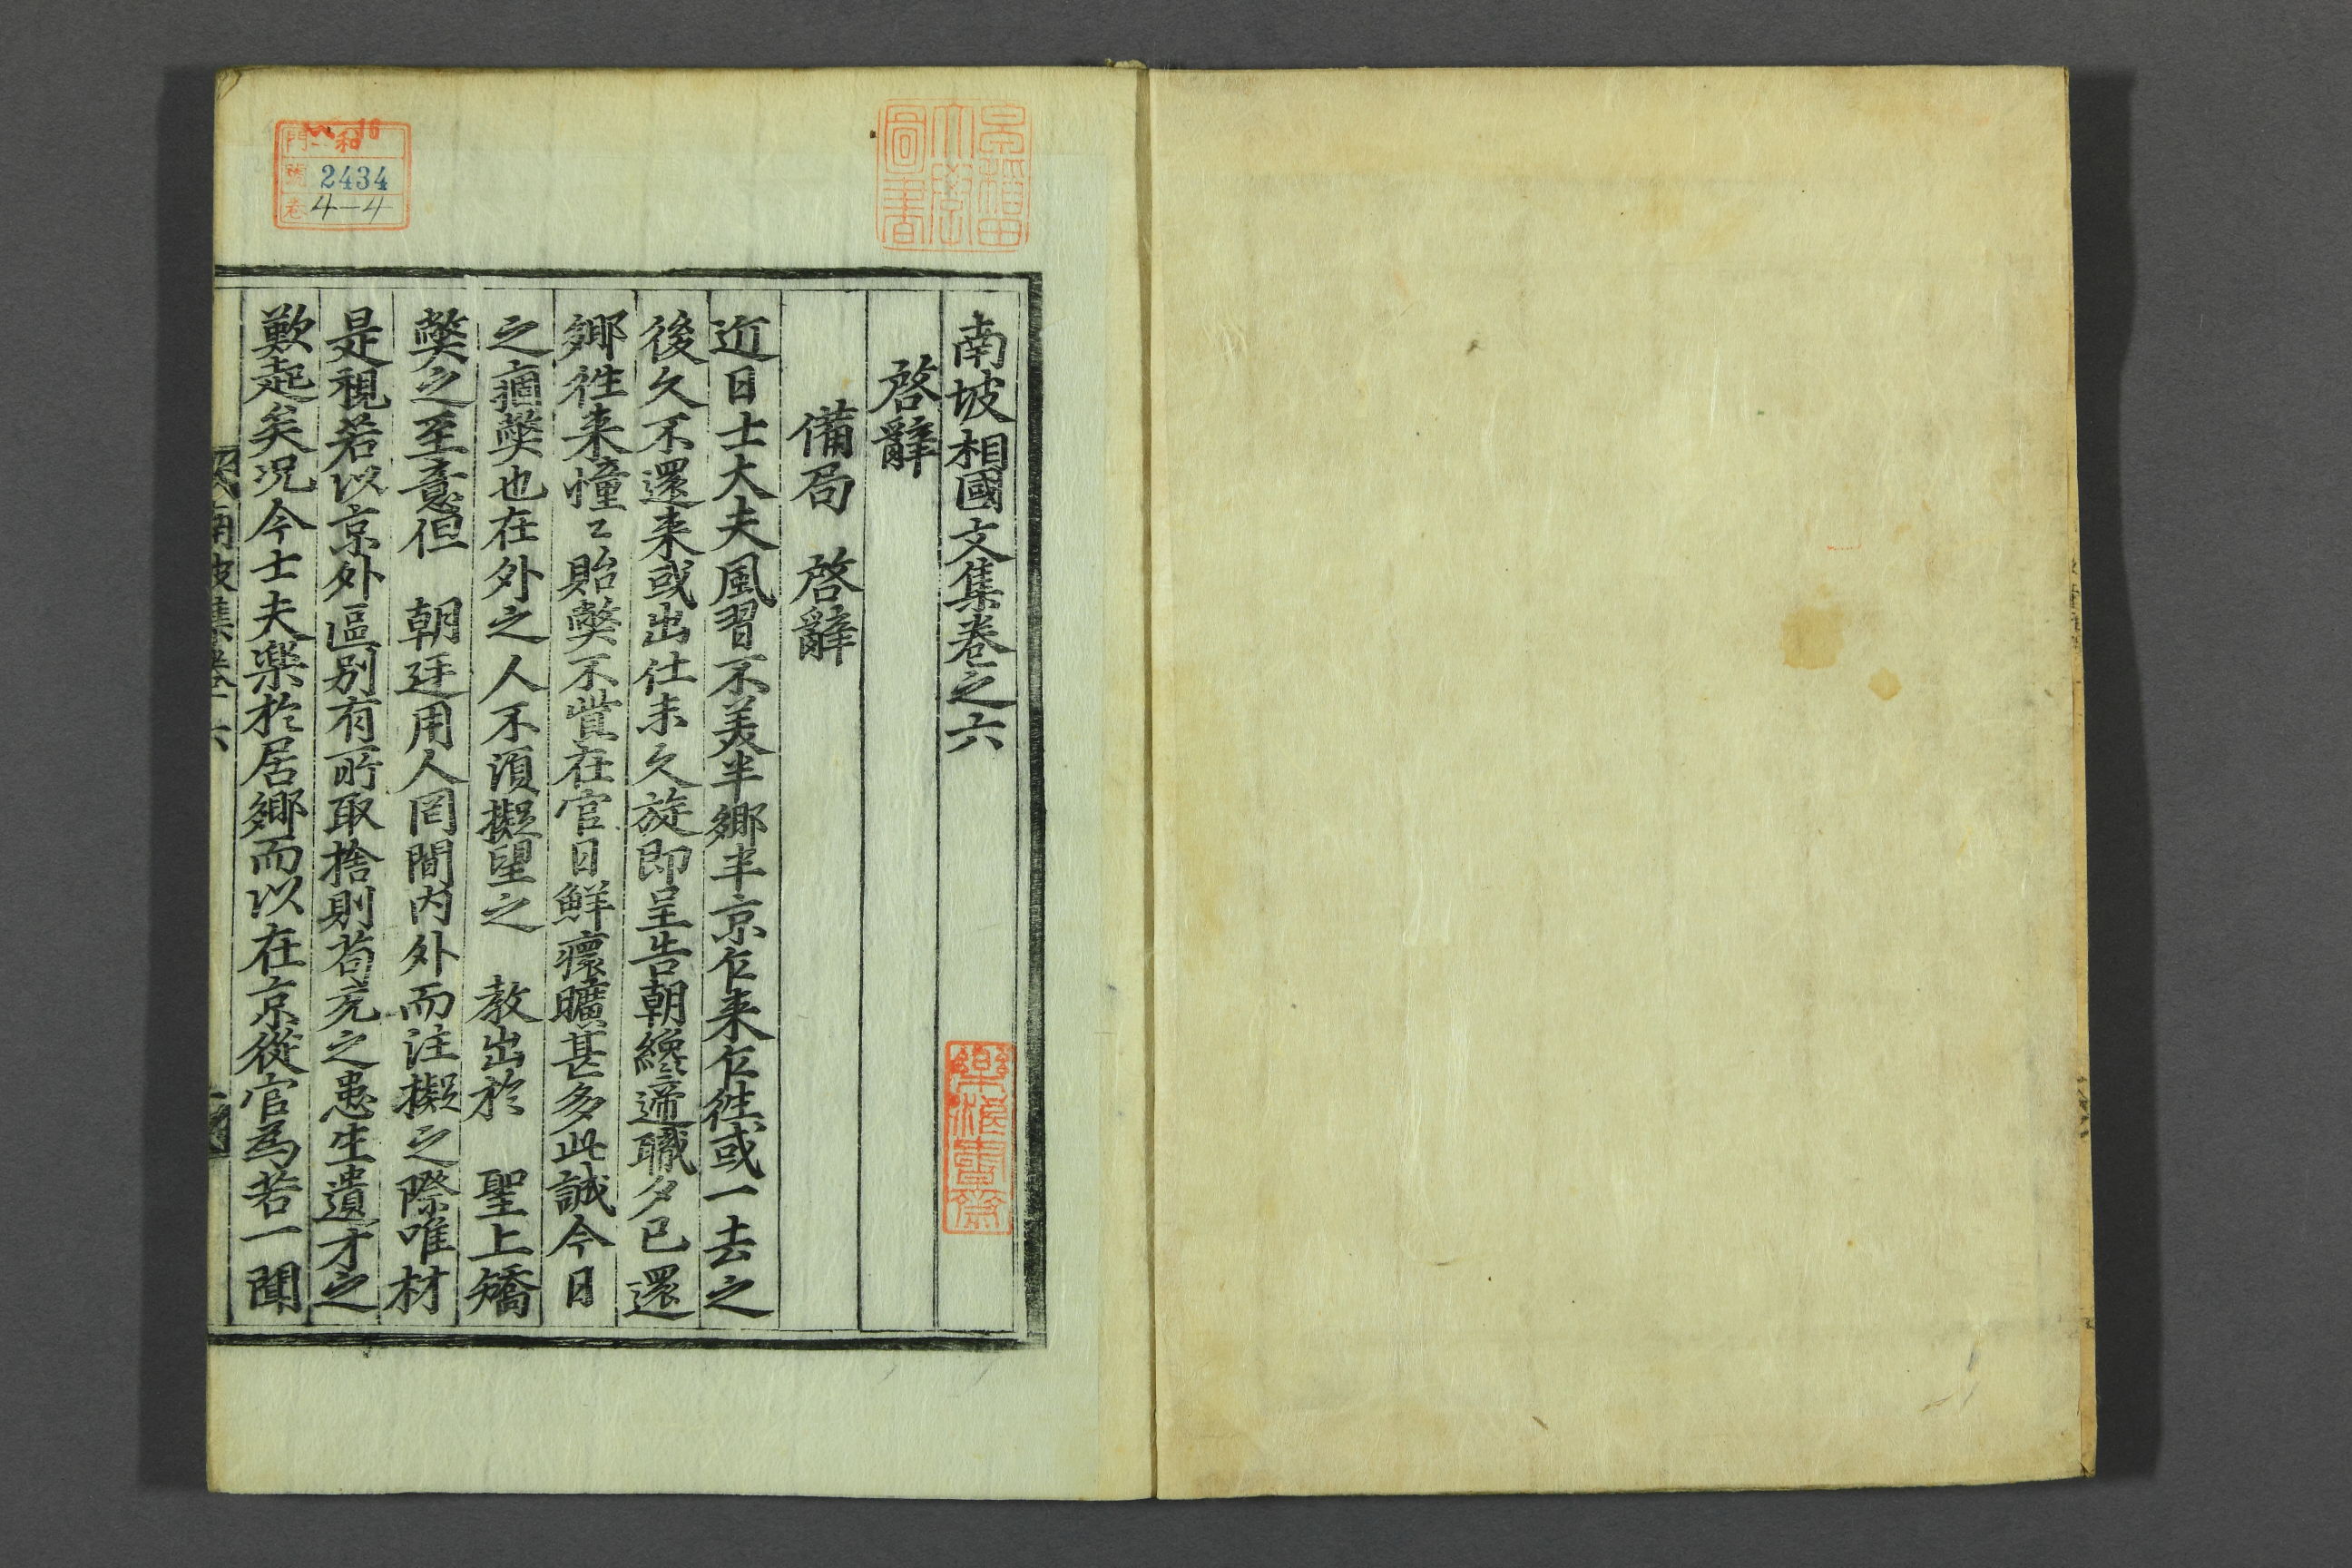 南坡相國文集卷之六
啓辭
備局 啓辭
近日士大夫風習不美半鄉半京乍来乍徃或一去之
後久不還来或出仕未久旋即呈告朝纔遞職夕已還
鄉徃来憧〻貽弊不貲在官日鮮瘝曠甚多此誠今日
之痼弊也在外之人不湏擬望之 敎出於 聖上矯
弊之至意但 朝廷用人罔間內外而注擬之際唯材
是視若以京外區别有所取捨則苟充之患生遺才之
歎起矣况今士夫樂於居鄉而以在京從官為若一聞
南坡集卷六
門 和 16
號 2434
卷 4-4
圖書